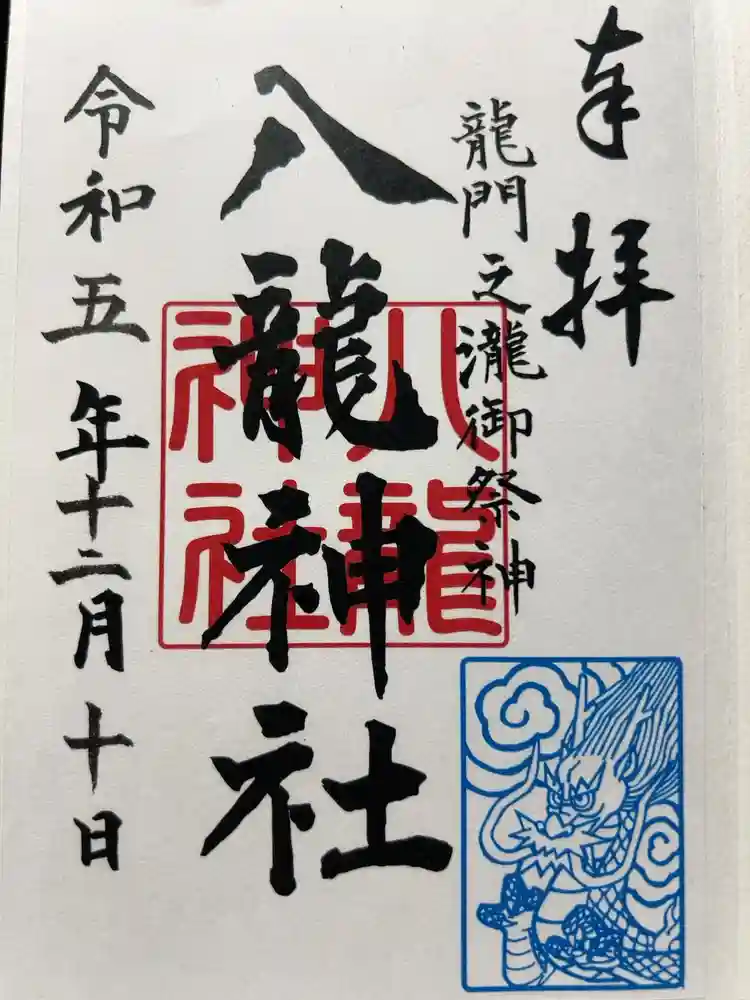 奉拝
龍門之瀧御祭神
八龍神社
八龍
神社
令和五年十二月十日